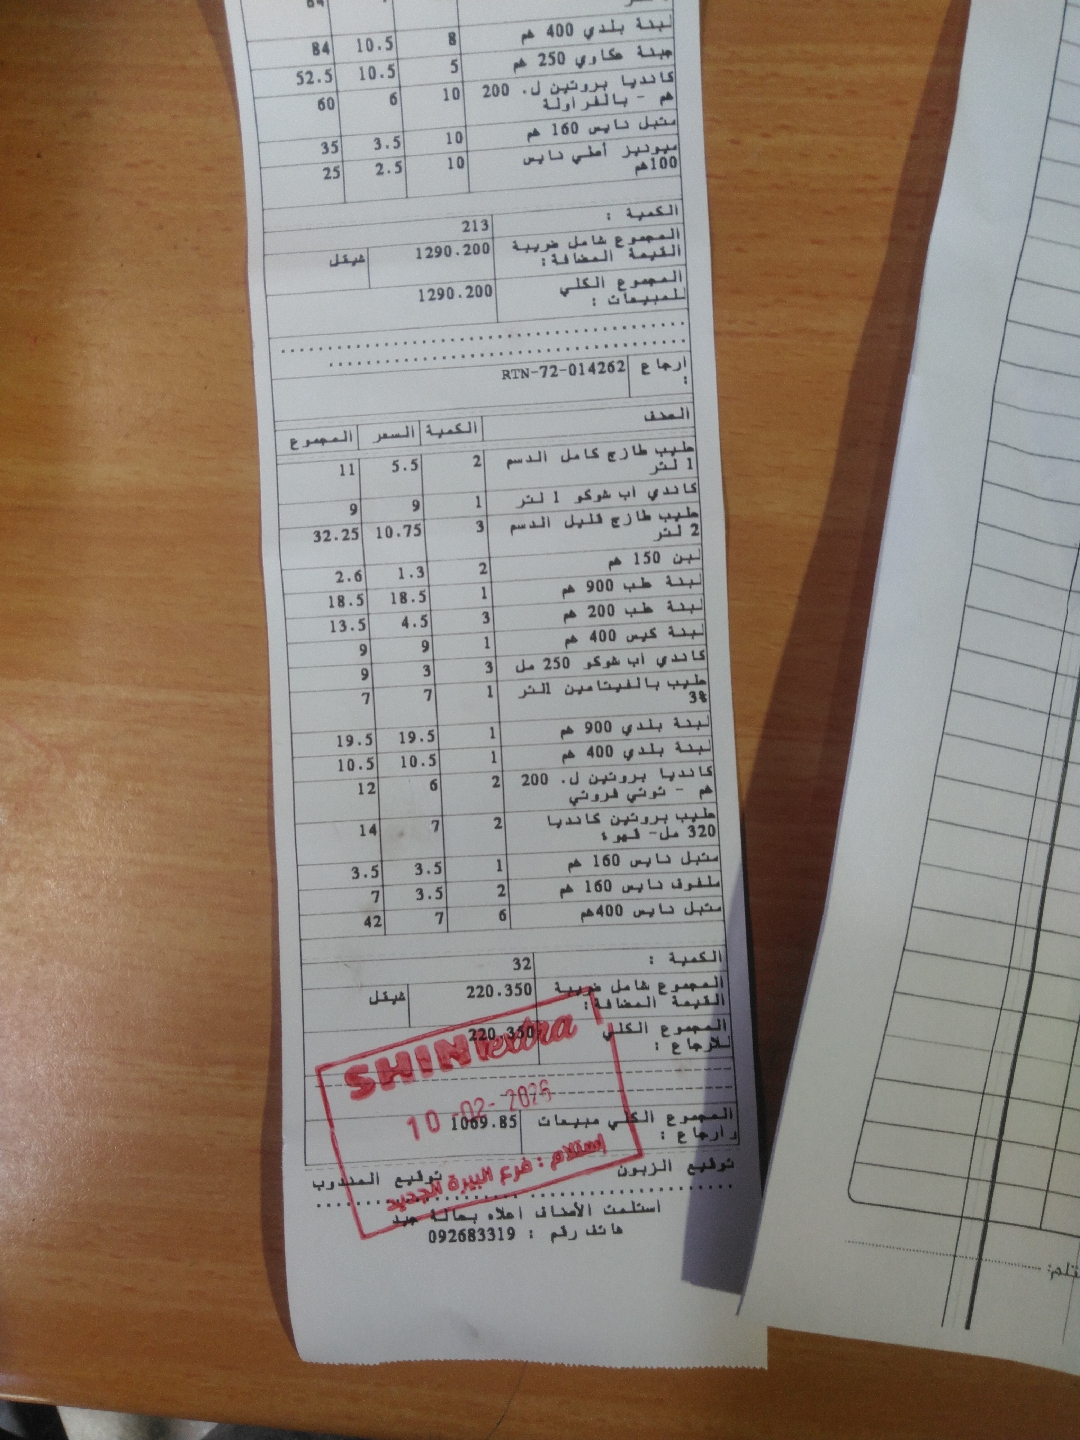 64
لبنة بلدي 400 غم 8 10.5 84
جبنة عكاوي 250 غم 5 10.5 52.5
كانديا بروتين ل. 200 10 6 60
غم - بالفراولة
متبل نايس 160 غم 10 3.5 35
ميونيز أصلي نايس 10 2.5 25
100غم
الكمية : 213
المجموع شامل ضريبة 1290.200 شيقل
القيمة المضافة:
المجموع الكلي 1290.200
للمبيعات :
أرجاع RTN-72-014262
:
الصنف الكمية السعر المجموع
حليب طازج كامل الدسم 2 5.5 11
1 لتر
كاندي أب شوكو 1 لتر 1 9 9
حليب طازج قليل الدسم 3 10.75 32.25
2 لتر
لبن 150 غم 2 1.3 2.6
لبنة علب 900 غم 1 18.5 18.5
لبنة علب 200 غم 3 4.5 13.5
لبنة كيس 400 غم 1 9 9
كاندي أب شوكو 250 مل 3 3 9
حليب بالفيتامين 1لتر 1 7 7
3%
لبنة بلدي 900 غم 1 19.5 19.5
لبنة بلدي 400 غم 1 10.5 10.5
كانديا بروتين ل. 200 2 6 12
غم - توتي فروتي
حليب بروتين كانديا 2 7 14
320 مل- قهوة
متبل نايس 160 غم 1 3.5 3.5
ملفوف نايس 160 غم 2 3.5 7
متبل نايس 400غم 6 7 42
الكمية : 32
المجموع شامل ضريبة 220.350 شيقل
القيمة المضافة:
المجموع الكلي 220.350
للأرجاع :
SHINI extra
10 -02- 2026
المجموع الكلي مبيعات 1069.85
وأرجاع :
إستلام : فرع البيرة الجديد
توقيع الزبون توقيع المندوب
أستلمت الأصناف أعلاه بحالة جيد
هاتف رقم : 092683319